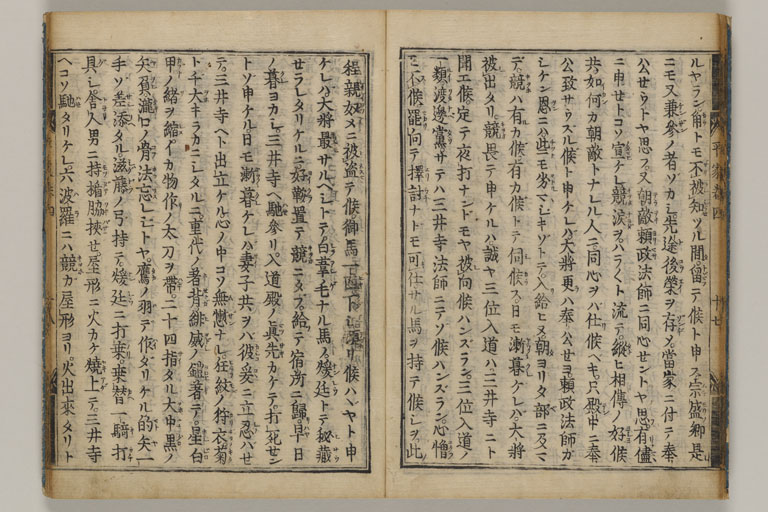 ルヤラン角トモ不被知ツル間留テ候ト申ス宗盛卿是
ニモ又兼参ノ者ソカシ先途後榮ヲ存メ當家ニ付テ奉
公せウトヤ思フ又朝敵頼政法師ニ同心せントヤ思有儘
ニ申せトコソ宣ケレ競涙ヲハラ〱ト流テ縦ヒ相傳ノ好候
共如何カ朝敵トナレル人ニ同心ヲハ仕候ヘキ只殿中ニ奉
公致サウスル候ト申ケレハ大将更ハ奉公せヨ頼政法師カ
シケン恩ニハ些モ劣マシキソトテ入給ヒヌ朝ヨリ夕部ニ及マ
テ競ハ有カ候有カ候トテ伺候ス日モ漸暮ケレハ大将
被出タリ競畏テ申ケルハ誠ヤ三位入道ハ三井寺ニト
聞エ候定テ夜打ナントモヤ被向候ハンスラン三位入道ノ
一類渡邊黨サテハ三井寺法師ニテソ候ハンスラン心憎
モ不候罷向テ擇討ナトモ可仕サル馬ヲ持テ候シヲ此
平家巻四 十七
程親奴メニ被盗テ候御馬一疋下シ預リ候ハヤト申
ケレハ大将最サルヘシトテ白葦毛ナル馬ノ煖廷トテ秘蔵
せラレタリケルニ好鞍置テ競ニタフ給テ宿所ニ歸早日
ノ暮ヨカシ三井寺ヘ馳参リ入道殿ノ真先カケテ打死せン
トソ申ケル日モ漸暮ケレハ妻子共ヲハ彼爰ニ立忍ハせ
テ三井寺ヘト出立ケル心ノ中コソ無慙ナレ狂紋ノ狩衣菊
トチ大キラカニシタルニ重代ノ著背緋威ノ鎧著テ星白
甲ノ緒ヲ縮イカ物作ノ太刀ヲ帶二十四指タル大中黒ノ
矢負瀧口ノ骨法忘レシトヤ鷹ノ羽テ作タリケル的矢一
手ソ差添タル滋藤ノ弓持テ煖廷ニ打乗乗替一騎打
具シ舎人男ニ持楯脇挾せ屋形ニ火カケ燒上テ三井寺
ヘコソ馳タリケレ六波羅ニハ競カ屋形ヨリ火出來タリト